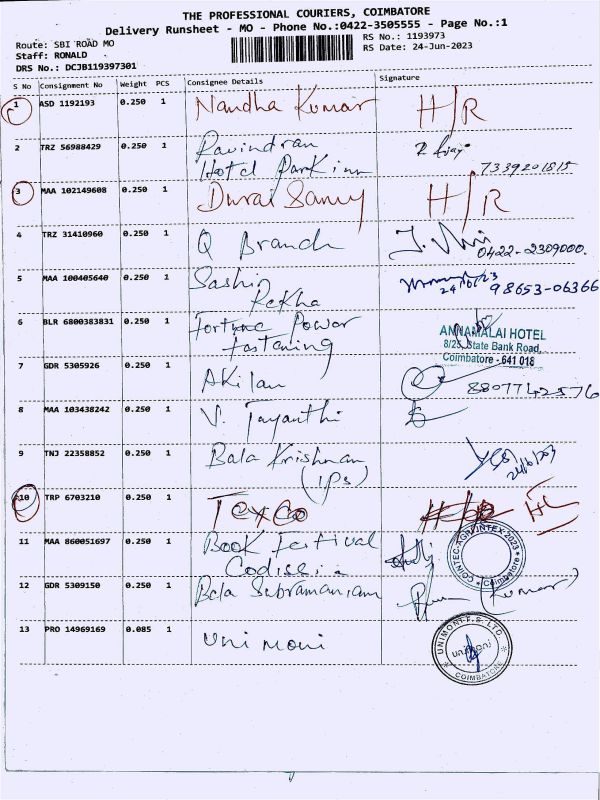 THE PROFESSIONAL COURIERS, COIMBATORE
Delivery Runsheet - MO - Phone No.:0422-3505555 - Page No.:1
Route: SBI ROAD MO
RS No.: 1193973
Staff: RONALD
RS Date: 24-Jun-2023
DRS No.: DCJB119397301
S No Consignment No Weight PCS Consignee Details Signature
1 ASD 1192193 0.250 1 Nandha Kumar H/R
2 TRZ 56988429 0.250 1 Ravindran
Hotel Park inn 7339201815
3 MAA 102149608 0.250 1 Durai Samy H/R
4 TRZ 31410960 0.250 1 Q Branch 0422-2309000.
5 MAA 100405640 0.250 1 Sashi
Rekha 98653-06366
6 BLR 6800383831 0.250 1 Fortune Power
Fastening
ANNAMALAI HOTEL
8/25, State Bank Road,
Coimbatore - 641 018
7 GDR 5305926 0.250 1 Akilan 8807742576
8 MAA 103438242 0.250 1 V. Jayanthi
9 TNJ 22358852 0.250 1 Bala Krishnan
(IPS)
10 TRP 6703210 0.250 1 Texco
11 MAA 860051697 0.250 1 Book festival
Codissia
COINTEC-AGRI INTEX-2023
Coimbatore
12 GDR 5309150 0.250 1 Bala Subramaniam (Kumar)
13 PRO 14969169 0.085 1 Uni Moni
UNIMONI F.S. LTD.
UNIMONI
COIMBATORE